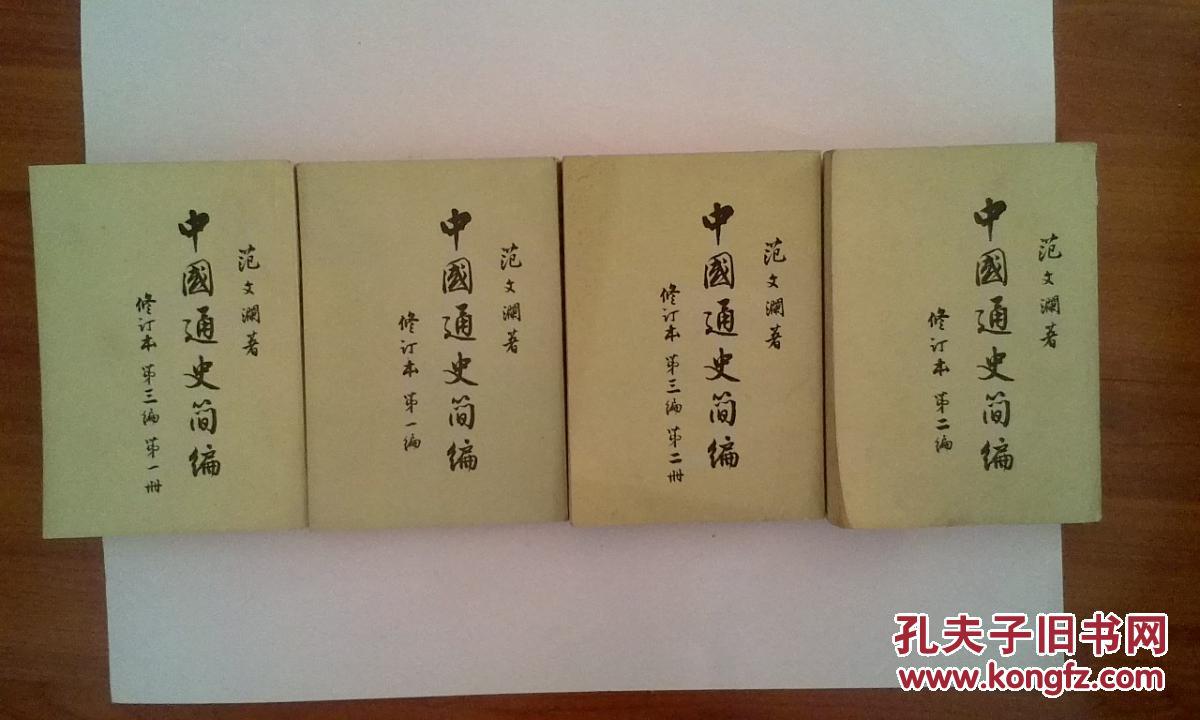 范文瀾著
中國通史简编
修订本 第三编 第一冊
范文瀾著
中國通史简编
修订本 第一编
范文瀾著
中國通史简编
修订本 第三编 第二冊
范文瀾著
中國通史简编
修订本 第二编
孔夫子旧书网
www.kongfz.com